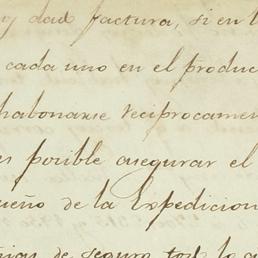 y dad factura, si en l
cada uno en el produc
habonarse reciprocamen
posible asegurar el
ueño de la Expedicion
de seguro